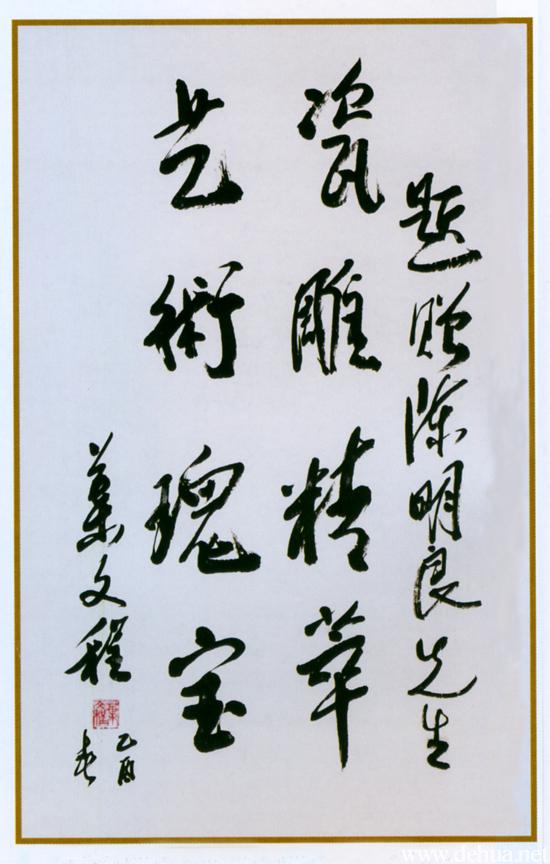 题赠陈明良先生
瓷雕精萃
艺術瑰宝
叶文程
乙酉
春
www.dehua.net